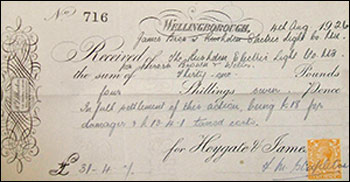 No 716
WELLINGBOROUGH, 4th Aug 1926
James Bros v Rushden Electric Light Co Ltd.
Received of The Rushden Electric Light Co. Ltd.
per Messrs Browne & Wells.
the sum of Thirty one Pounds
four Shillings seven Pence
In full settlement of this action, being £18 for
damages & £13-4-7 taxed costs.
for Heygate & James
£ 31-4-7.